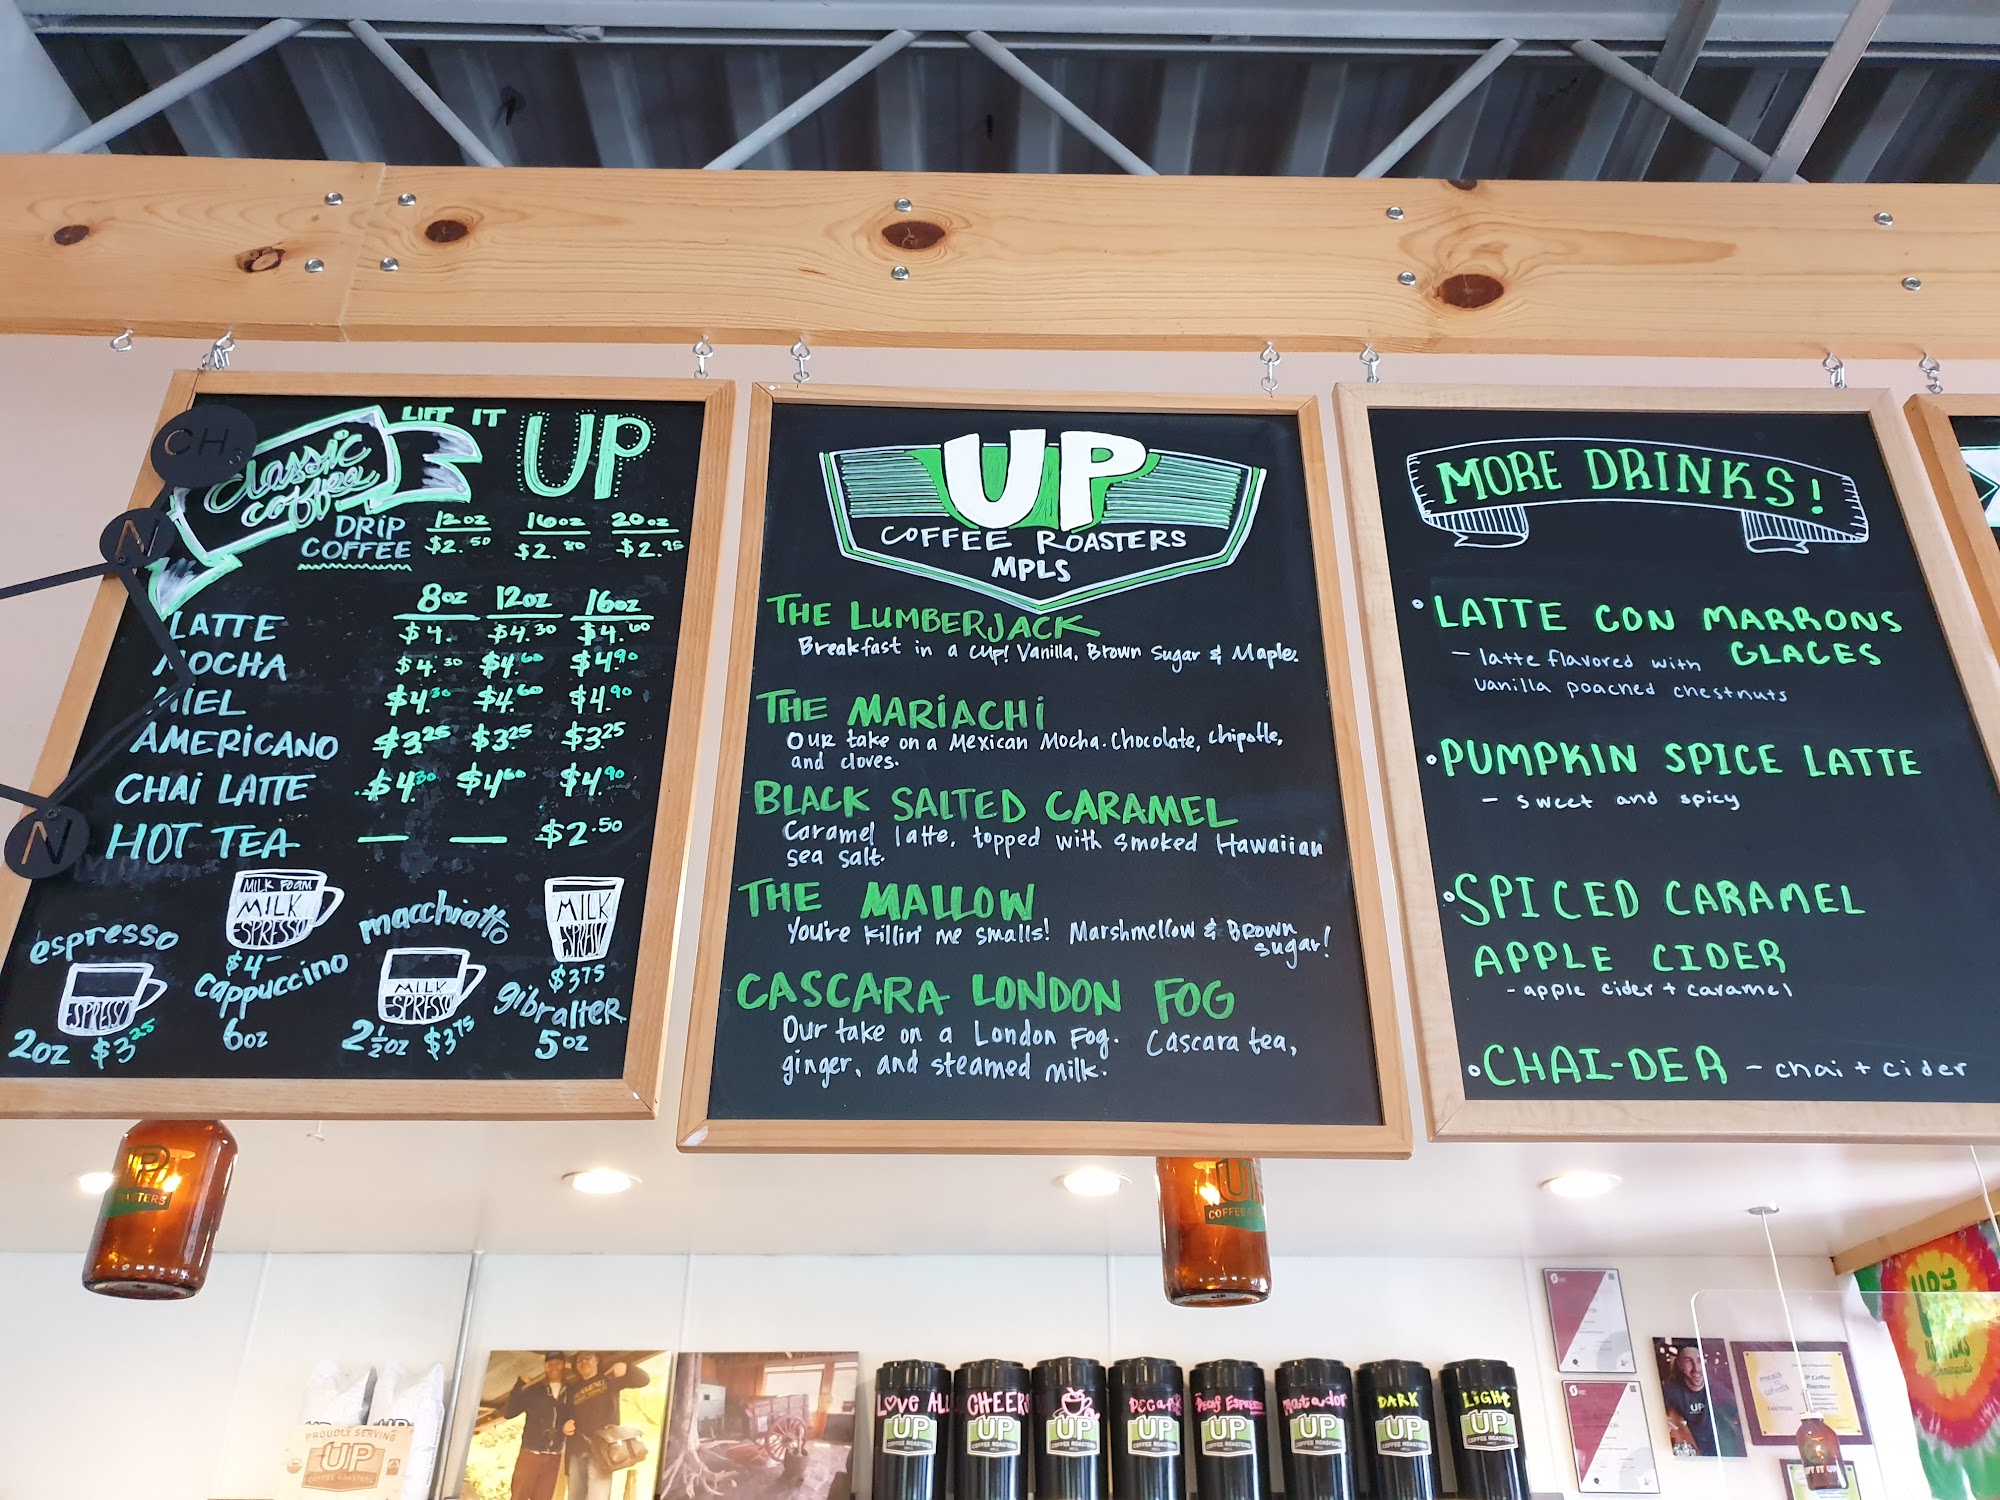 LIFT IT UP
Classic
coffee
CH
N
N
DRIP
COFFEE
12oz 16oz 20oz
$2.50 $2.80 $2.95
8oz 12oz 16oz
LATTE $4. $4.30 $4.60
MOCHA $4.30 $4.60 $4.90
MIEL $4.30 $4.60 $4.90
AMERICANO $3.25 $3.25 $3.25
CHAI LATTE $4.30 $4.60 $4.90
HOT TEA — — $2.50
espresso
ESPRESSO
2oz $3.25
MILK FOAM
MILK
ESPRESSO
$4-
cappuccino
6oz
macchiatto
MILK
ESPRESSO
2½oz $3.75
MILK
ESPRESSO
$3.75
gibralter
5oz
UP
COFFEE ROASTERS
MPLS
THE LUMBERJACK
Breakfast in a cup! Vanilla, Brown Sugar & Maple.
THE MARIACHI
Our take on a Mexican Mocha. Chocolate, chipotle,
and cloves.
BLACK SALTED CARAMEL
Caramel latte, topped with smoked Hawaiian
sea salt.
THE MALLOW
You're Killin' me smalls! Marshmellow & Brown
sugar!
CASCARA LONDON FOG
Our take on a London Fog. Cascara tea,
ginger, and steamed milk.
MORE DRINKS!
LATTE CON MARRONS
GLACES
- latte flavored with
vanilla poached chestnuts
PUMPKIN SPICE LATTE
- sweet and spicy
SPICED CARAMEL
APPLE CIDER
- apple cider + caramel
CHAI-DER - chai + cider
UP
COFFEE
PROUDLY SERVING
UP
COFFEE ROASTERS
Love ALL
UP
COFFEE ROASTERS
CHEERS
UP
COFFEE ROASTERS
UP
COFFEE ROASTERS
Decaf
UP
COFFEE ROASTERS
Decaf Espresso
UP
COFFEE ROASTERS
Matador
UP
COFFEE ROASTERS
DARK
UP
COFFEE ROASTERS
LiGHt
UP
COFFEE ROASTERS